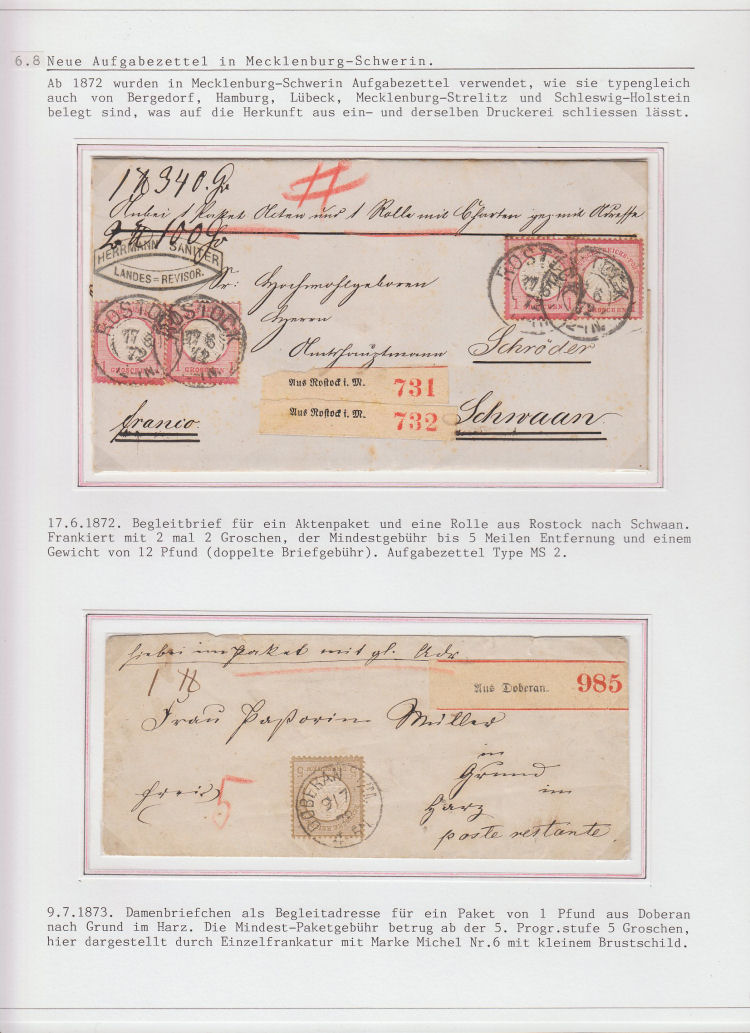 6.8 Neue Aufgabezettel in Mecklenburg-Schwerin.
Ab 1872 wurden in Mecklenburg-Schwerin Aufgabezettel verwendet, wie sie typengleich
auch von Bergedorf, Hamburg, Lübeck, Mecklenburg-Strelitz und Schleswig-Holstein
belegt sind, was auf die Herkunft aus ein- und derselben Druckerei schliessen lässt.
Anbei 1 Paket Acten und 1 Rolle mit Charten gez mit Adresse
HERRMANN SANITER
LANDES=REVISOR.
Sr. Hochwohlgeboren
Herrn
Amtshauptmann Schröder
ROSTOCK
17 6
72
ROSTOCK
17 6
72
ROSTOCK
17 6
72
Aus Rostock i. M. 731
Aus Rostock i. M. 732
franco.
Schwaan.
17.6.1872. Begleitbrief für ein Aktenpaket und eine Rolle aus Rostock nach Schwaan.
Frankiert mit 2 mal 2 Groschen, der Mindestgebühr bis 5 Meilen Entfernung und einem
Gewicht von 12 Pfund (doppelte Briefgebühr). Aufgabezettel Type MS 2.
hiebei im Paket mit gl. Adr
Aus Doberan. 985
Frau Paßorin Müller
in
Grund
im
Harz
poste restante.
frei
5
DOBERAN
9 7
17.6.1872
9.7.1873. Damenbriefchen als Begleitadresse für ein Paket von 1 Pfund aus Doberan
nach Grund im Harz. Die Mindest-Paketgebühr betrug ab der 5. Progr.stufe 5 Groschen,
hier dargestellt durch Einzelfrankatur mit Marke Michel Nr.6 mit kleinem Brustschild.